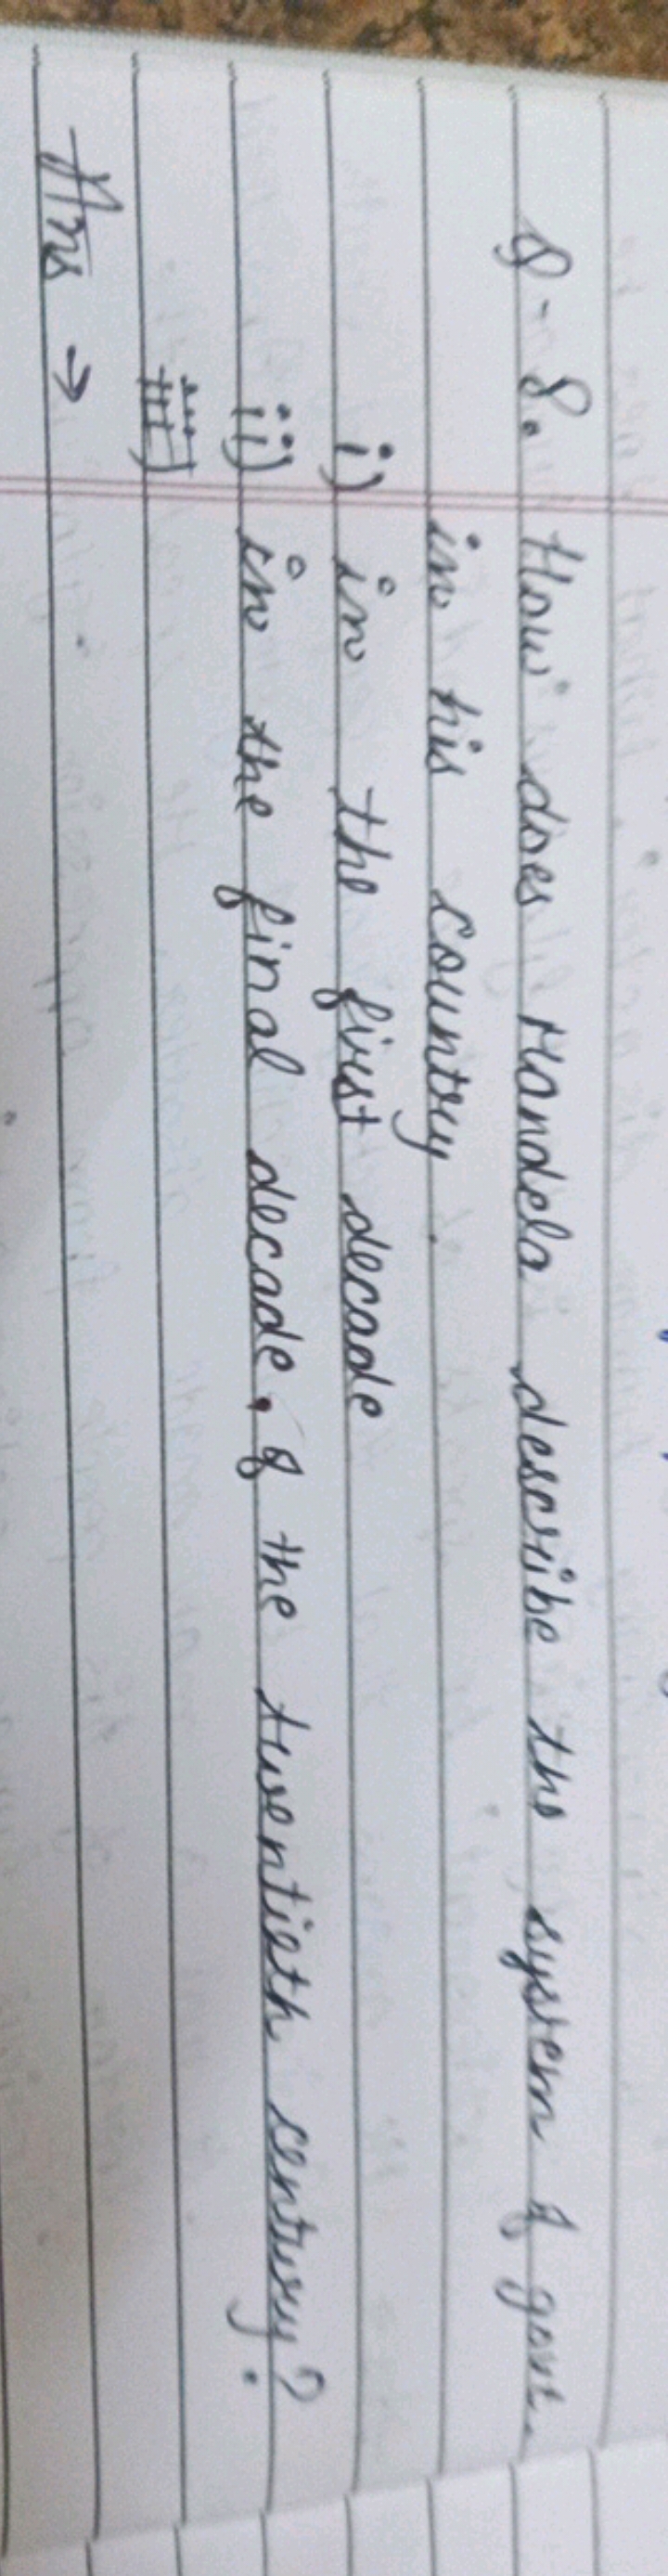 Q-8. How does Mandela describe the system of govt.
in his country.
i) in the first decade
ii) in the final decade, of the twentieth century?
iii)
Ans →